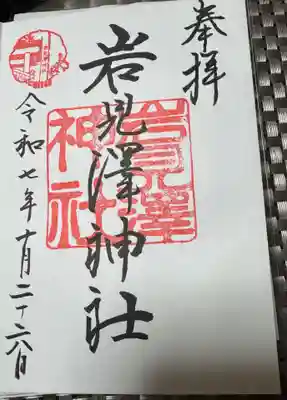 奉拝
岩見澤神社
岩見澤
神社
令和七年十月二十六日